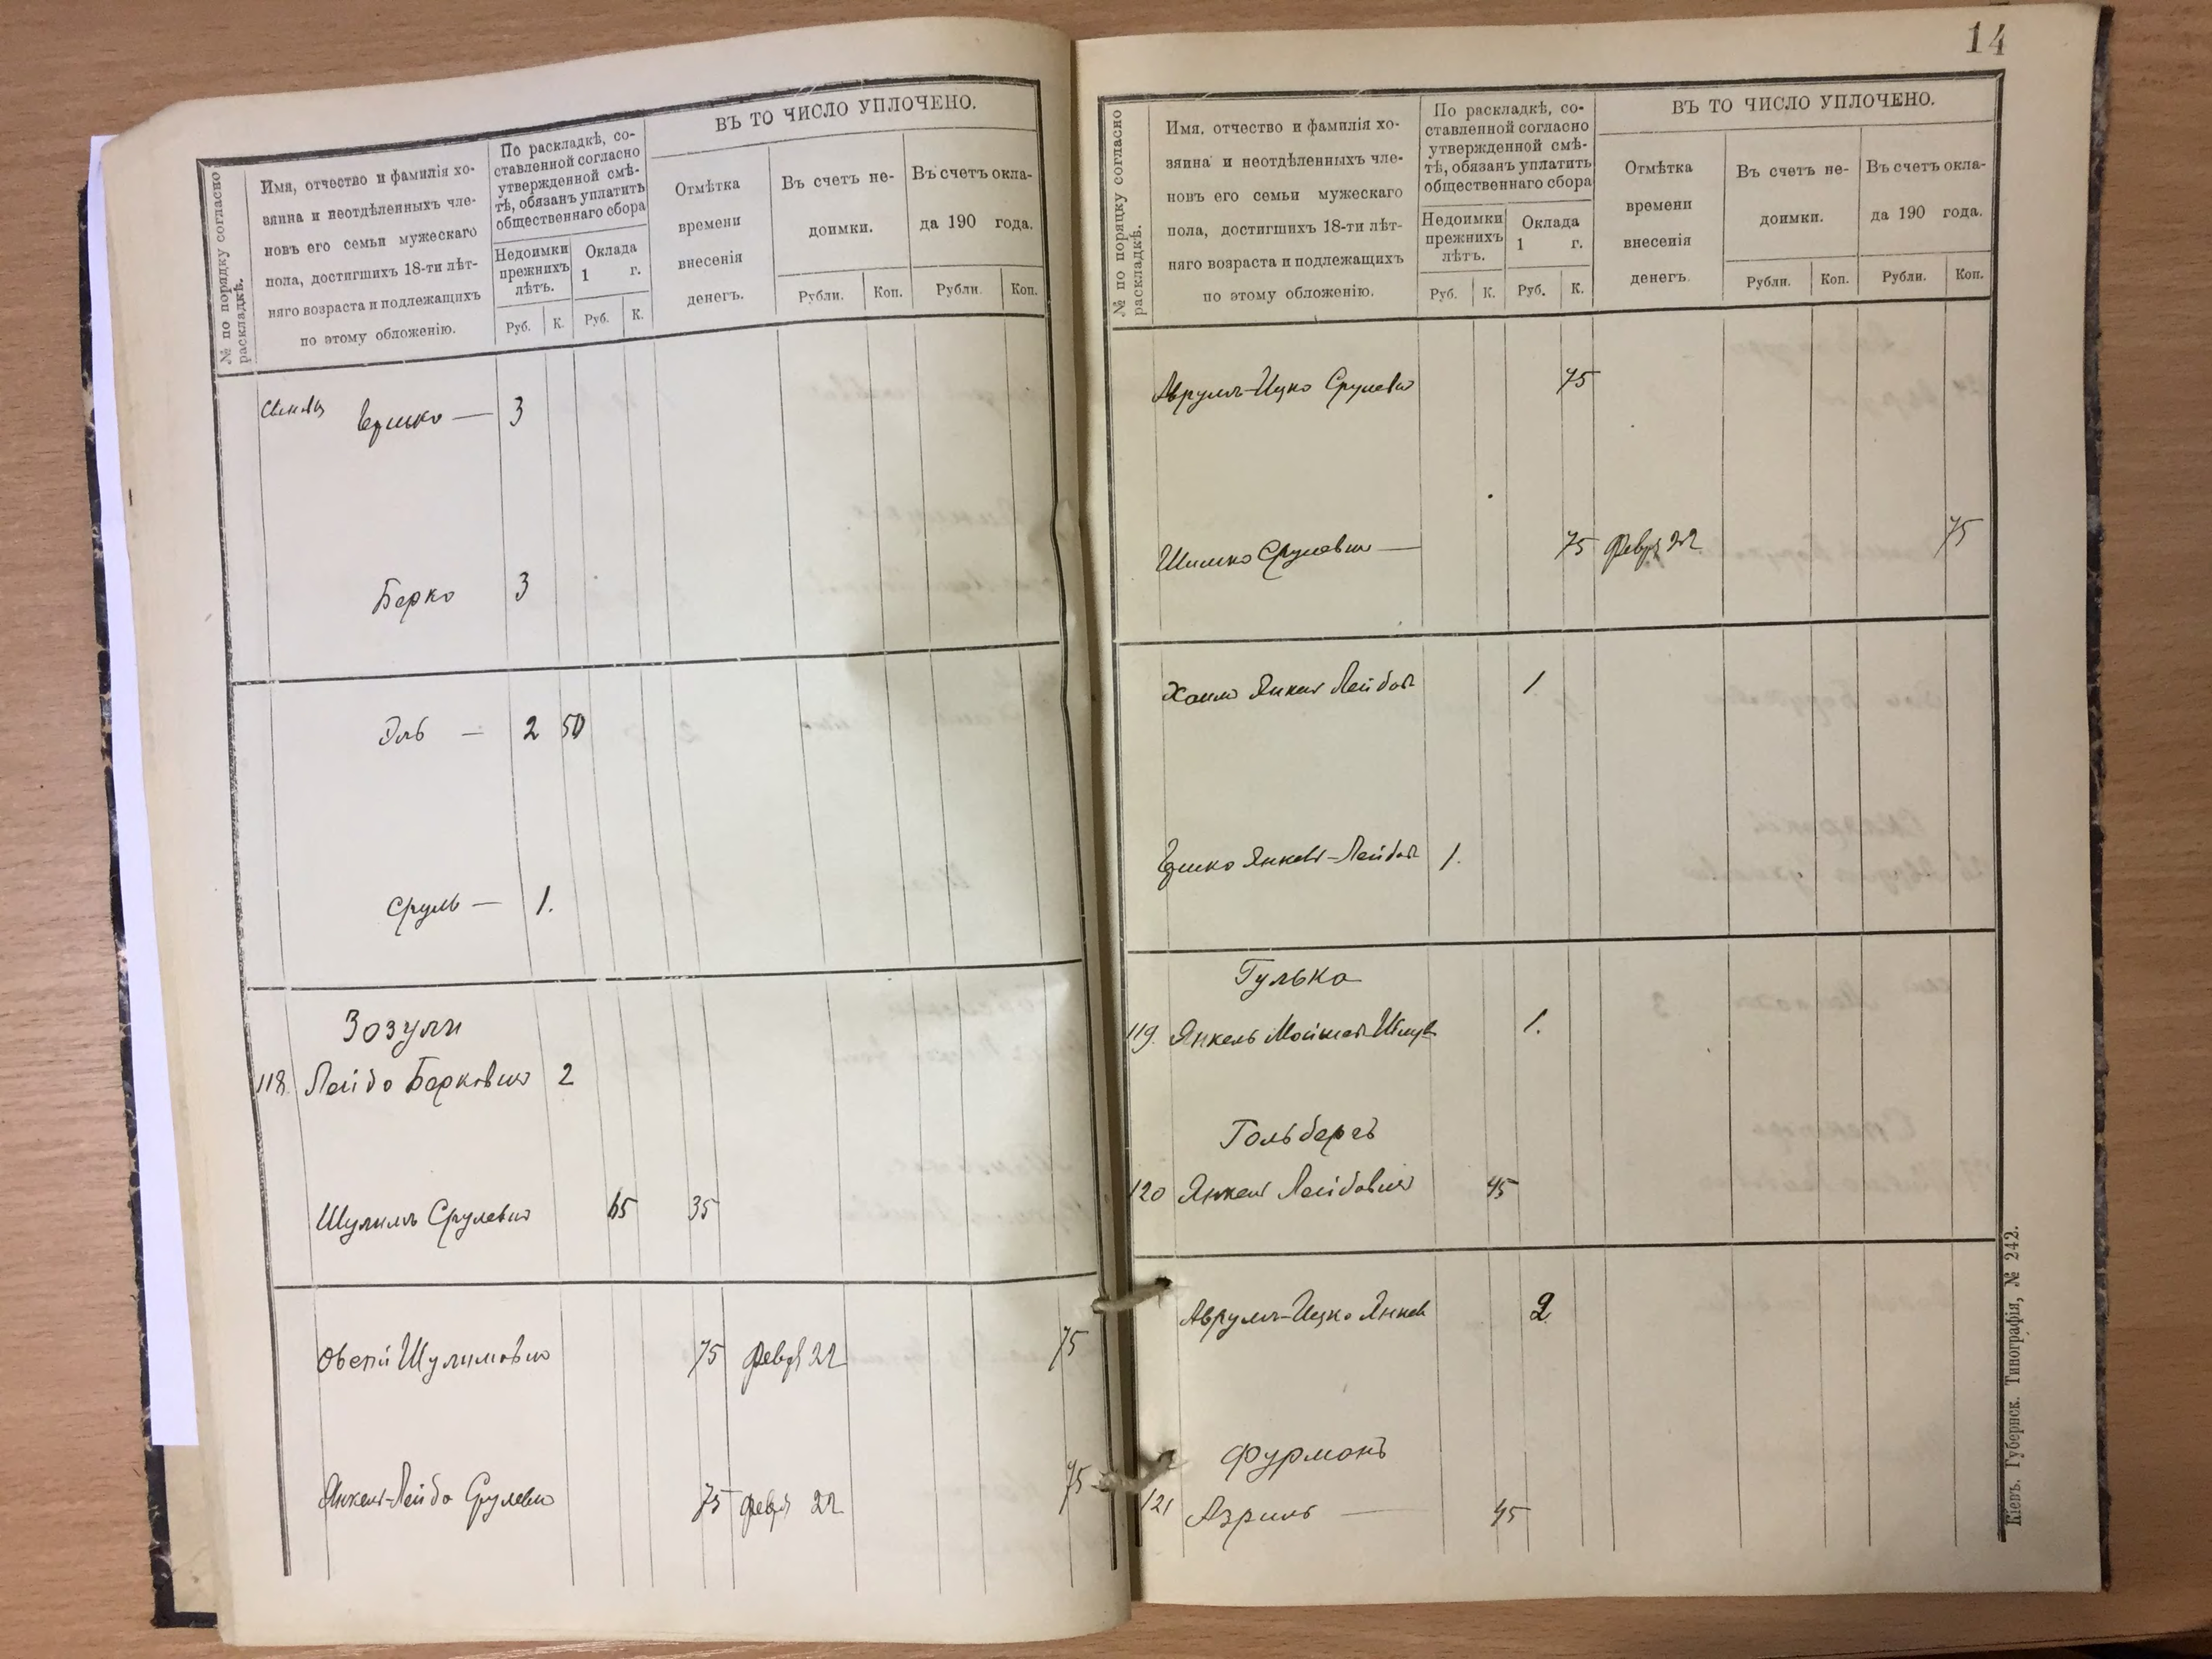 ВЪ ТО ЧИСЛО УПЛОЧЕНО.
№ по порядку согласно раскладкѣ.
Имя, отчество и фамилія хо-
зяина и неотдѣленныхъ чле-
новъ его семьи мужескаго
пола, достигшихъ 18-ти лѣт-
няго возраста и подлежащихъ
по этому обложенію.
По раскладкѣ, со-
ставленной согласно
утвержденной смѣ-
тѣ, обязанъ уплатить
общественнаго сбора
Недоимки
прежнихъ
лѣтъ.
Оклада
1 г.
Руб. К. Руб. К.
Отмѣтка
времени
внесенія
денегъ.
Въ счетъ не-
доимки.
Въ счетъ окла-
да 190 года.
Рубли. Коп. Рубли. Коп.
Ершко — 3
Берко 3
Эль — 2 50
Сруль — 1.
Зозули
118. Лейба Берковичъ 2
Шулимъ Срулевичъ 65 35
Овсей Шулимовичъ 75 Февр 22 75
Янкель-Лейба Срулевичъ 75 Февр 22 75
14
№ по порядку согласно раскладкѣ.
Имя, отчество и фамилія хо-
зяина и неотдѣленныхъ чле-
новъ его семьи мужескаго
пола, достигшихъ 18-ти лѣт-
няго возраста и подлежащихъ
по этому обложенію.
По раскладкѣ, со-
ставленной согласно
утвержденной смѣ-
тѣ, обязанъ уплатить
общественнаго сбора
Недоимки
прежнихъ
лѣтъ.
Оклада
1 г.
Руб. К. Руб. К.
ВЪ ТО ЧИСЛО УПЛОЧЕНО.
Отмѣтка
времени
внесенія
денегъ.
Въ счетъ не-
доимки.
Въ счетъ окла-
да 190 года.
Рубли. Коп. Рубли. Коп.
Аврумъ-Ицко Срулевъ 75
Шимко Срулевичъ — 75 Февр 22 75
Хаимъ Янкель Лейбов 1
Ершко Янкель-Лейбов 1.
Гулька
119. Янкель Мойше 1.
Гольберъ
120 Янкель Лейбовичъ 45
Аврумъ-Ицко Янкел 2
Фурманъ
121 Азриль — 45
Кіевъ. Губернск. Типографія, № 242.